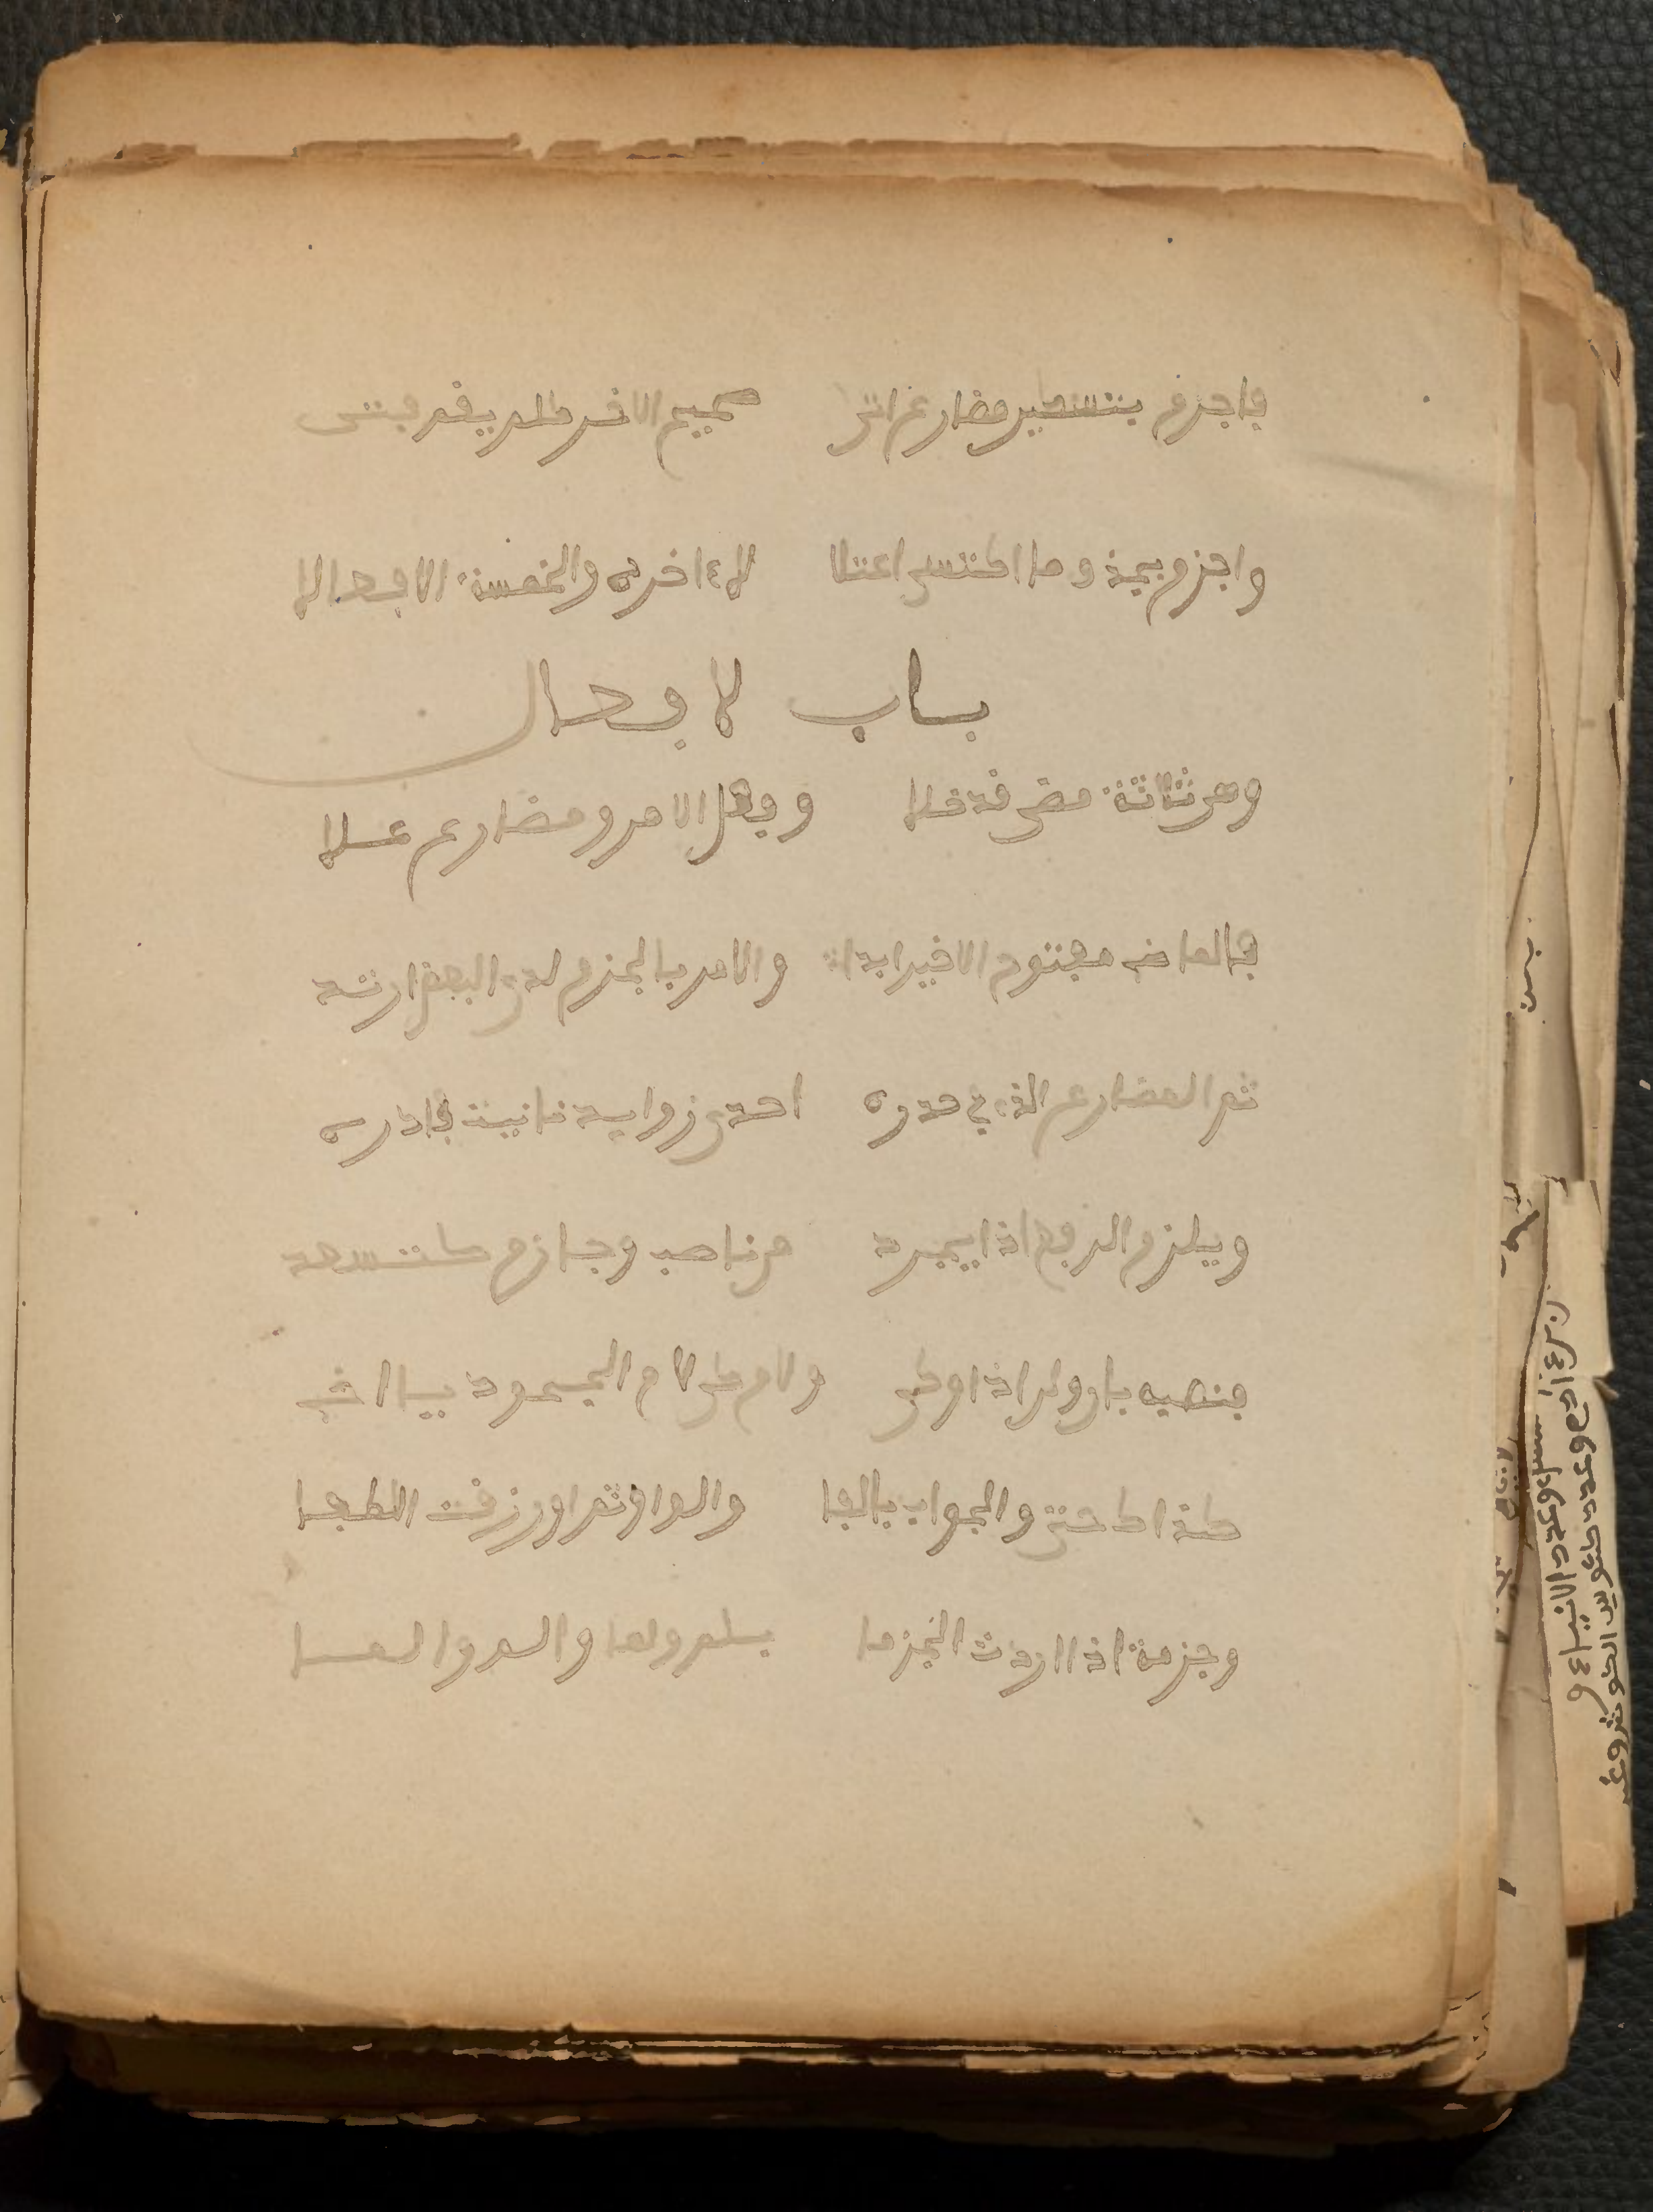 فاجزم بتسكين مضارع اتى صحيح الاخر كلم يقم فتى
واجزم بحذف ما اكتسى اعتلالا ءاخره والخمسة الافعالا
باب لافعال
وهي ثلاثة مضى قد خلا وفعل الامر ومضارع علا
فالماض مفتوح الاخير ابدا والامر بالجزم لدى البعض ارتدا
ثم المضارع الذي صدره احدى زوايد نانيت فادره
ويلزم الرفع اذا يجرد من ناصب وجازم كتسعد
فنصبه بان ولن اذا وكي ولام كي لام الجحود يا اخي
كذاك حتى والجواب بالفا والواو ثم او رزقت اللطفا
وجزمه اذا اردت الجزما بلم ولما والم والما